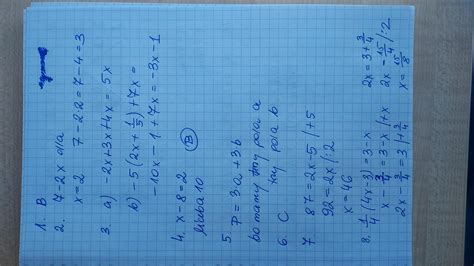 1. B
2. 7-2x dla
x=2 7-2·2=7-4=3
3. a) -2x+3x+4x=5x
b) -5(2x+1/5)+7x=
-10x-1+7x=3x-1
4. x-8=2 B
liczba 10
5. P=3a+3b
bo mamy trzy pola a
trzy pola b
6. C
7 87=2x-5 |+5
92=2x |:2
x=46
8. 1/4(4x-3)=3-x
x-3/4=3-x |+x
2x-3/4=3 |+3/4
2x=3+3/4
2x=15/4 |:2
x=15/8